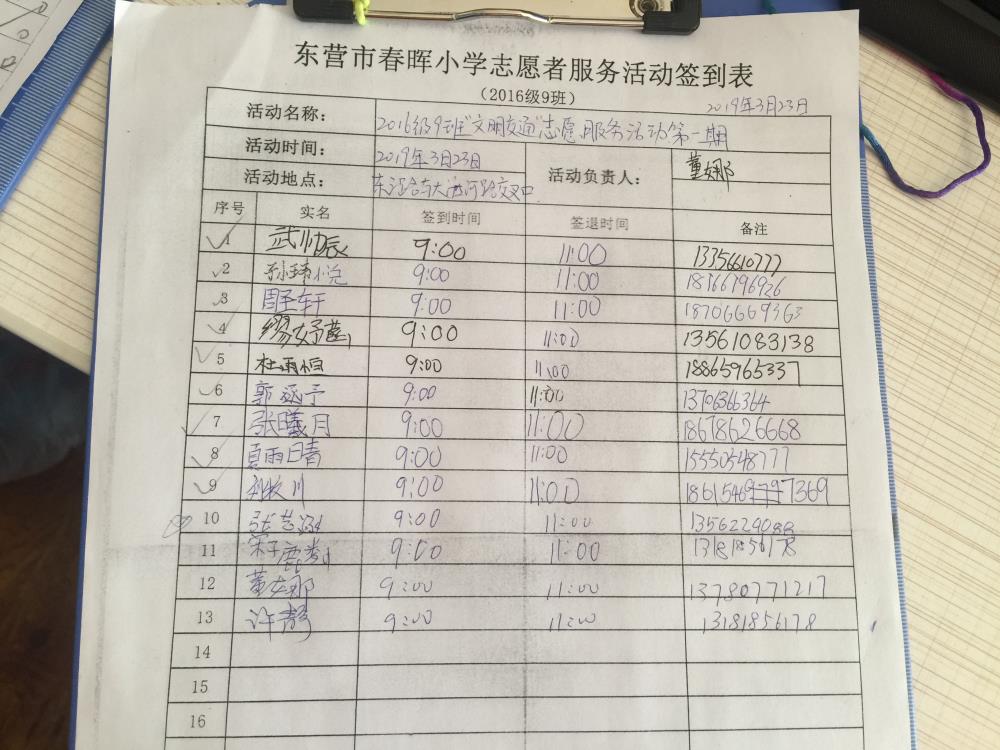 东营市春晖小学志愿者服务活动签到表
（2016级9班） 2019年3月23日
活动名称： 2016级9班"文明交通"志愿服务活动第一期
活动时间： 2019年3月23日 活动负责人： 董娜娜
活动地点：
序号 实名 签到时间 签退时间 备注
1 武帅辰 9:00 11:00 13356610777
2 孙玮悦 9:00 11:00 18766796926
3 周子轩 9:00 11:00 18706669363
4 9:00 11:00 13561083138
5 杜雨恒 9:00 11:00 18865965337
6 郭丞予 9:00 11:00 13706366364
7 张曦月 9:00 11:00 18678626668
8 夏雨晴 9:00 11:00 15550548777
9 刘牧川 9:00 11:00
10 9:00 11:00
11 9:00 11:00 13181856178
12 9:00 11:00 13780771217
13 许静 9:00 11:00 13181856178
14
15
16